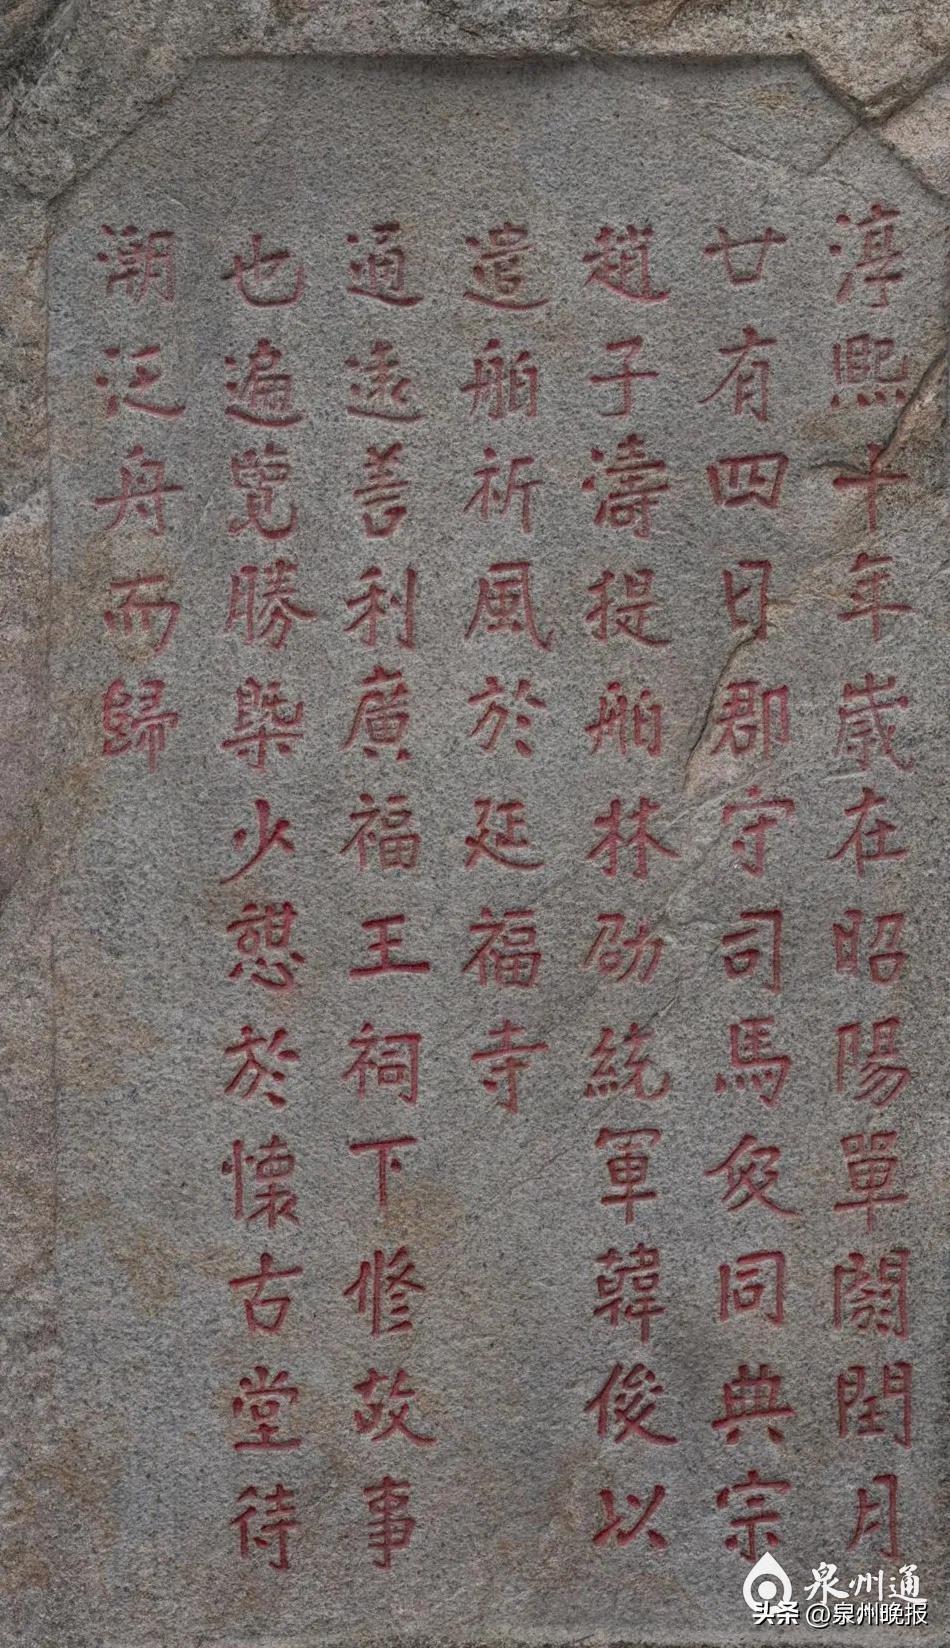 淳熙十年歲在昭陽單閼閏月
廿有四日郡守司馬伋同典宗
趙子濤提舶林劭統軍韓俊以
遣舶祈風於延福寺
通遠善利廣福王祠下修故事
也遍覽勝槩少憇於懷古堂待
潮泛舟而歸
泉州通
头条 @泉州晚报